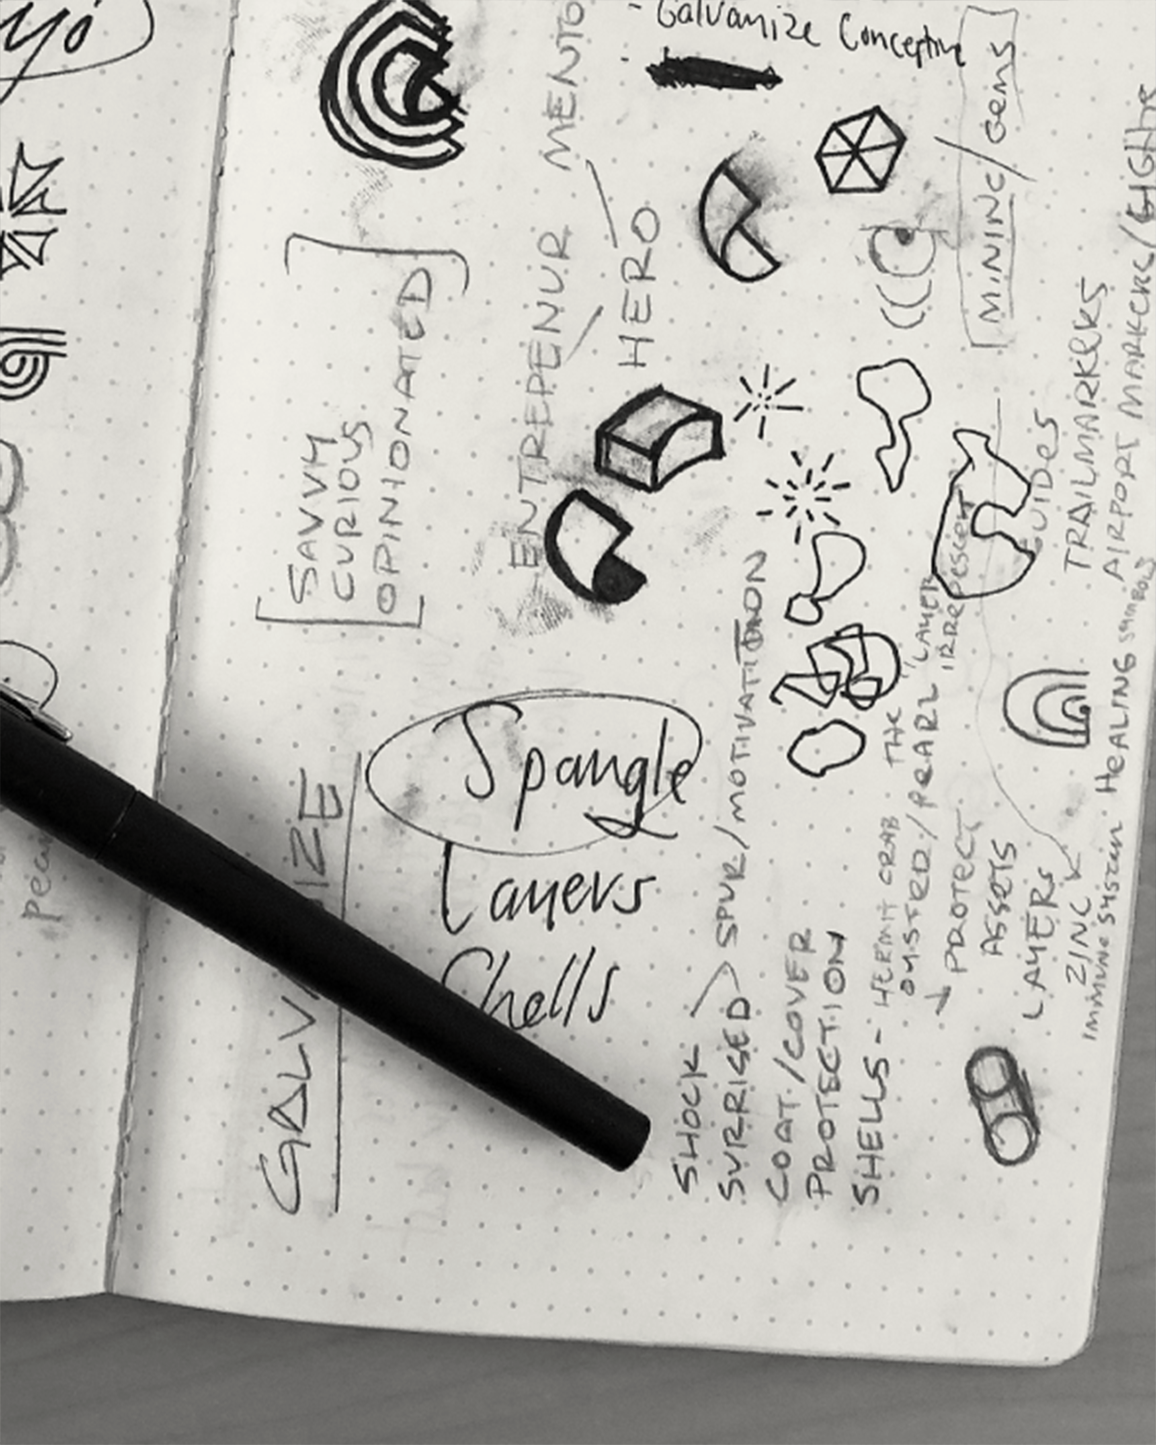 - Galvanize Conceptive
GALV IZE
[SAVVY
CURIOUS
OPINIONATED]
ENTREPENUR
MENTO
HERO
Spangle
Layers
Shells
SHOCK >
SURRISED > SPUR/MOTIVATION
COAT/COVER
PROTECTION
SHELLS - HERMIT CRAB
OYSTER/PEARL
THE
"LAYER
IRREPESCENT
→ PROTECT
ASSETS
LAYERS
ZINC
IMMUNE SYSTEM HEALING SYMBOLS
MINING/Gems
GUIDES
TRAILMARKERS
AIRPORT MARKERS (LIGHTS
pea